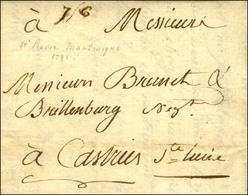 à Messieurs
St Pierre Martinique
1791
Messieurs Brunet &
Brillenburg Negts
à Castries Ste Lucie